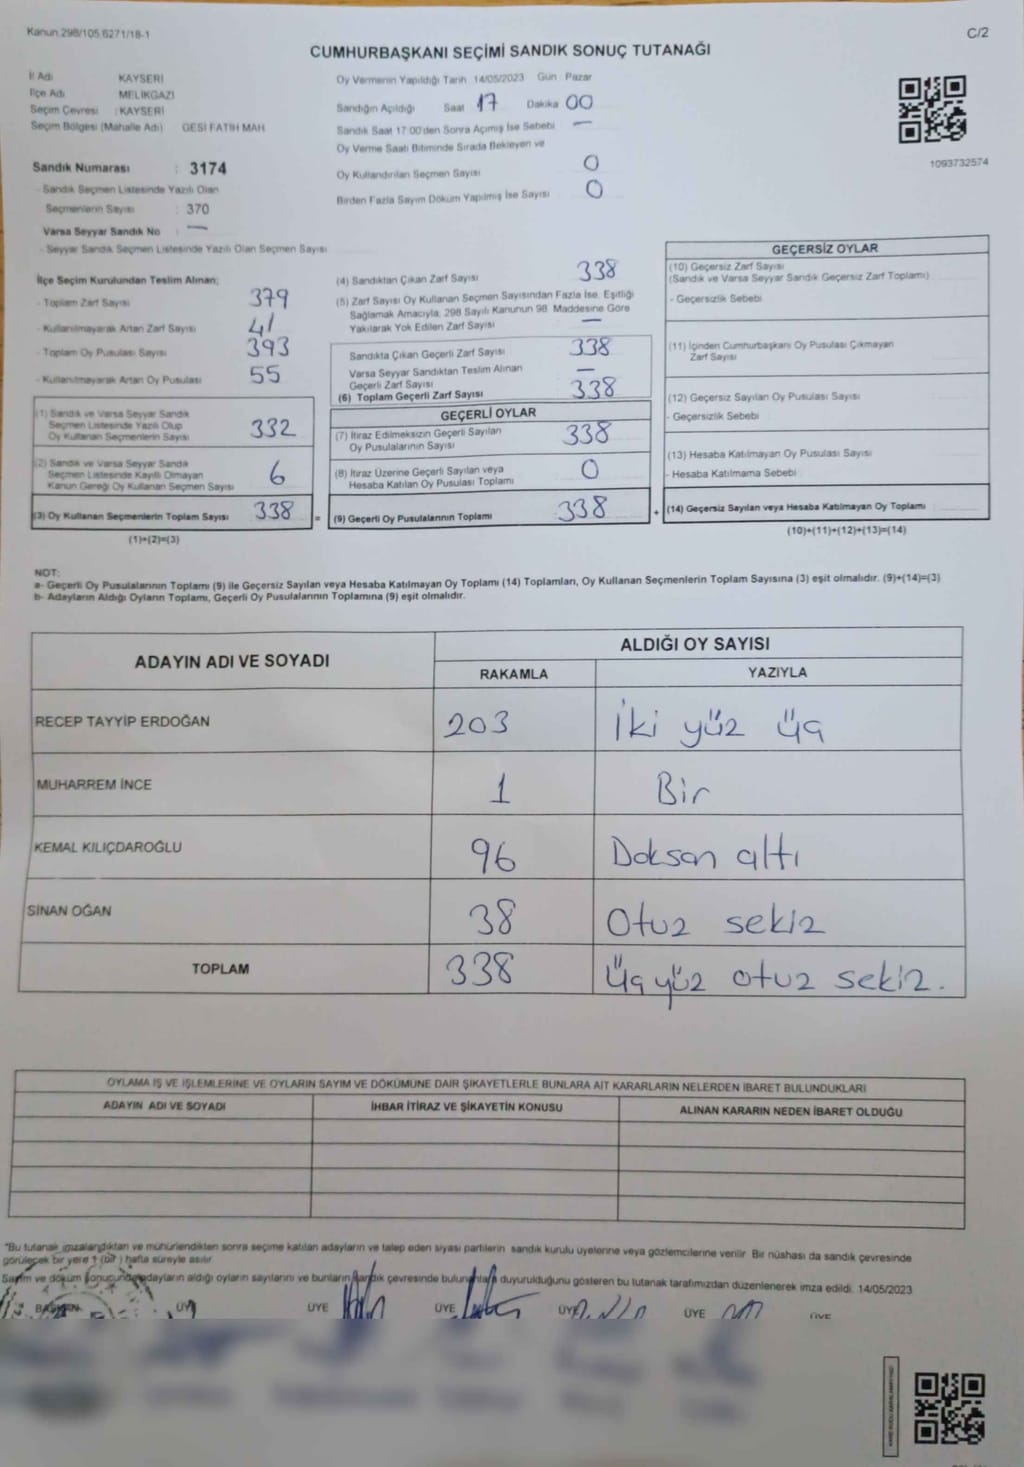 Kanun.298/105,6271/18-1
C/2
CUMHURBAŞKANI SEÇİMİ SANDIK SONUÇ TUTANAĞI
İl Adı KAYSERİ
İlçe Adı MELİKGAZİ
Seçim Çevresi : KAYSERİ
Seçim Bölgesi (Mahalle Adı) GESİ FATİH MAH
Sandık Numarası : 3174
- Sandık Seçmen Listesinde Yazılı Olan
Seçmenlerin Sayısı : 370
Varsa Seyyar Sandık No : —
- Seyyar Sandık Seçmen Listesinde Yazılı Olan Seçmen Sayısı
Oy Vermenin Yapıldığı Tarih 14/05/2023 Gün : Pazar
Sandığın Açıldığı Saat 17 Dakika 00
Sandık Saat 17:00'den Sonra Açımış İse Sebebi —
Oy Verme Saati Bitiminde Sırada Bekleyen ve
Oy Kullandırılan Seçmen Sayısı 0
Birden Fazla Sayım Döküm Yapılmış İse Sayısı 0
1093732574
İlçe Seçim Kurulundan Teslim Alınan;
- Toplam Zarf Sayısı 379
- Kullanılmayarak Artan Zarf Sayısı 41
- Toplam Oy Pusulası Sayısı 393
- Kullanılmayarak Artan Oy Pusulası 55
(1) Sandık ve Varsa Seyyar Sandık
Seçmen Listesinde Yazılı Olup
Oy Kullanan Seçmenlerin Sayısı 332
(2) Sandık ve Varsa Seyyar Sandık
Seçmen Listesinde Kayıtlı Olmayan
Kanun Gereği Oy Kullanan Seçmen Sayısı 6
(3) Oy Kullanan Seçmenlerin Toplam Sayısı 338
(1)+(2)=(3)
(4) Sandıktan Çıkan Zarf Sayısı 338
(5) Zarf Sayısı Oy Kullanan Seçmen Sayısından Fazla İse, Eşitliği
Sağlamak Amacıyla; 298 Sayılı Kanunun 98. Maddesine Göre
Yakılarak Yok Edilen Zarf Sayısı —
Sandıkta Çıkan Geçerli Zarf Sayısı 338
Varsa Seyyar Sandıktan Teslim Alınan
Geçerli Zarf Sayısı —
(6) Toplam Geçerli Zarf Sayısı 338
GEÇERLİ OYLAR
(7) İtiraz Edilmeksizin Geçerli Sayılan
Oy Pusulalarının Sayısı 338
(8) İtiraz Üzerine Geçerli Sayılan veya
Hesaba Katılan Oy Pusulası Toplamı 0
= (9) Geçerli Oy Pusulalarının Toplamı 338
GEÇERSİZ OYLAR
(10) Geçersiz Zarf Sayısı
(Sandık ve Varsa Seyyar Sandık Geçersiz Zarf Toplamı)
- Geçersizlik Sebebi
(11) İçinden Cumhurbaşkanı Oy Pusulası Çıkmayan
Zarf Sayısı
(12) Geçersiz Sayılan Oy Pusulası Sayısı
- Geçersizlik Sebebi
(13) Hesaba Katılmayan Oy Pusulası Sayısı
- Hesaba Katılmama Sebebi
+ (14) Geçersiz Sayılan veya Hesaba Katılmayan Oy Toplamı
(10)+(11)+(12)+(13)=(14)
NOT:
a- Geçerli Oy Pusulalarının Toplamı (9) ile Geçersiz Sayılan veya Hesaba Katılmayan Oy Toplamı (14) Toplamları, Oy Kullanan Seçmenlerin Toplam Sayısına (3) eşit olmalıdır. (9)+(14)=(3)
b- Adayların Aldığı Oyların Toplamı, Geçerli Oy Pusulalarının Toplamına (9) eşit olmalıdır.
ADAYIN ADI VE SOYADI ALDIĞI OY SAYISI
RAKAMLA YAZIYLA
RECEP TAYYİP ERDOĞAN 203 İki yüz üç
MUHARREM İNCE 1 Bir
KEMAL KILIÇDAROĞLU 96 Doksan altı
SİNAN OĞAN 38 Otuz sekiz
TOPLAM 338 Üç yüz otuz sekiz.
OYLAMA İŞ VE İŞLEMLERİNE VE OYLARIN SAYIM VE DÖKÜMÜNE DAİR ŞİKAYETLERLE BUNLARA AİT KARARLARIN NELERDEN İBARET BULUNDUKLARI
ADAYIN ADI VE SOYADI İHBAR İTİRAZ VE ŞİKAYETİN KONUSU ALINAN KARARIN NEDEN İBARET OLDUĞU
*Bu tutanak imzalandıktan ve mühürlendikten sonra seçime katılan adayların ve talep eden siyasi partilerin sandık kurulu üyelerine veya gözlemcilerine verilir. Bir nüshası da sandık çevresinde
görülecek bir yere 1 (bir) hafta süreyle asılır.
Sayım ve döküm sonucunda adayların aldığı oyların sayılarını ve bunların sandık çevresinde bulunanlara duyurulduğunu gösteren bu tutanak tarafımızdan düzenlenerek imza edildi. 14/05/2023
BAŞKAN ÜYE ÜYE ÜYE ÜYE ÜYE ÜYE